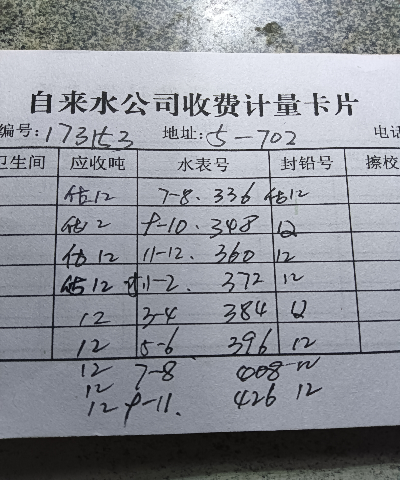 自来水公司收费计量卡片
编号: 173153 地址: 5-702 电话
卫生间 应收吨 水表号 封铅号 擦校
估12 7-8. 336 估12
估12 9-10. 348 12
估12 11-12. 360 12
估12 11-2. 372 12
12 3-4 384 12
12 5-6 396 12
12 7-8 408 12
12
12 9-11. 426 12